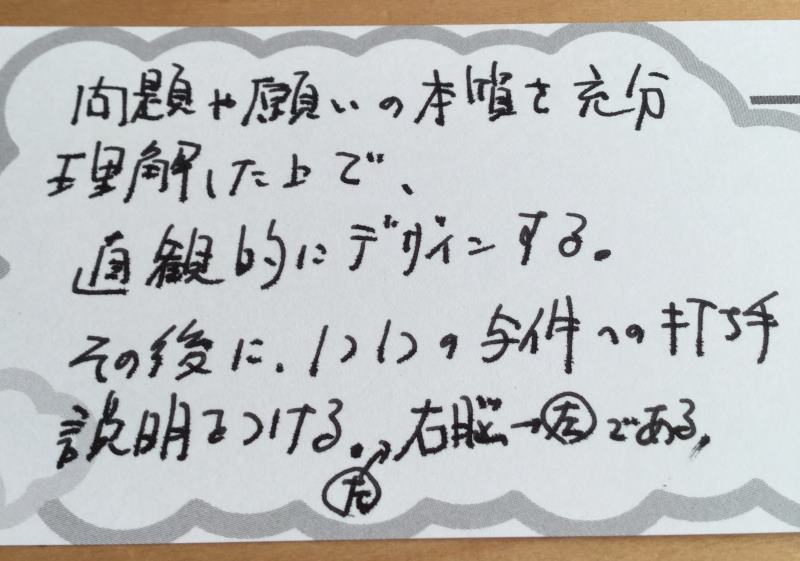 問題や願いの本質を充分
理解した上で、
直観的にデザインする。
その後に、1つ1つの与件への打ち手
説明をつける。 右脳→左である。
左